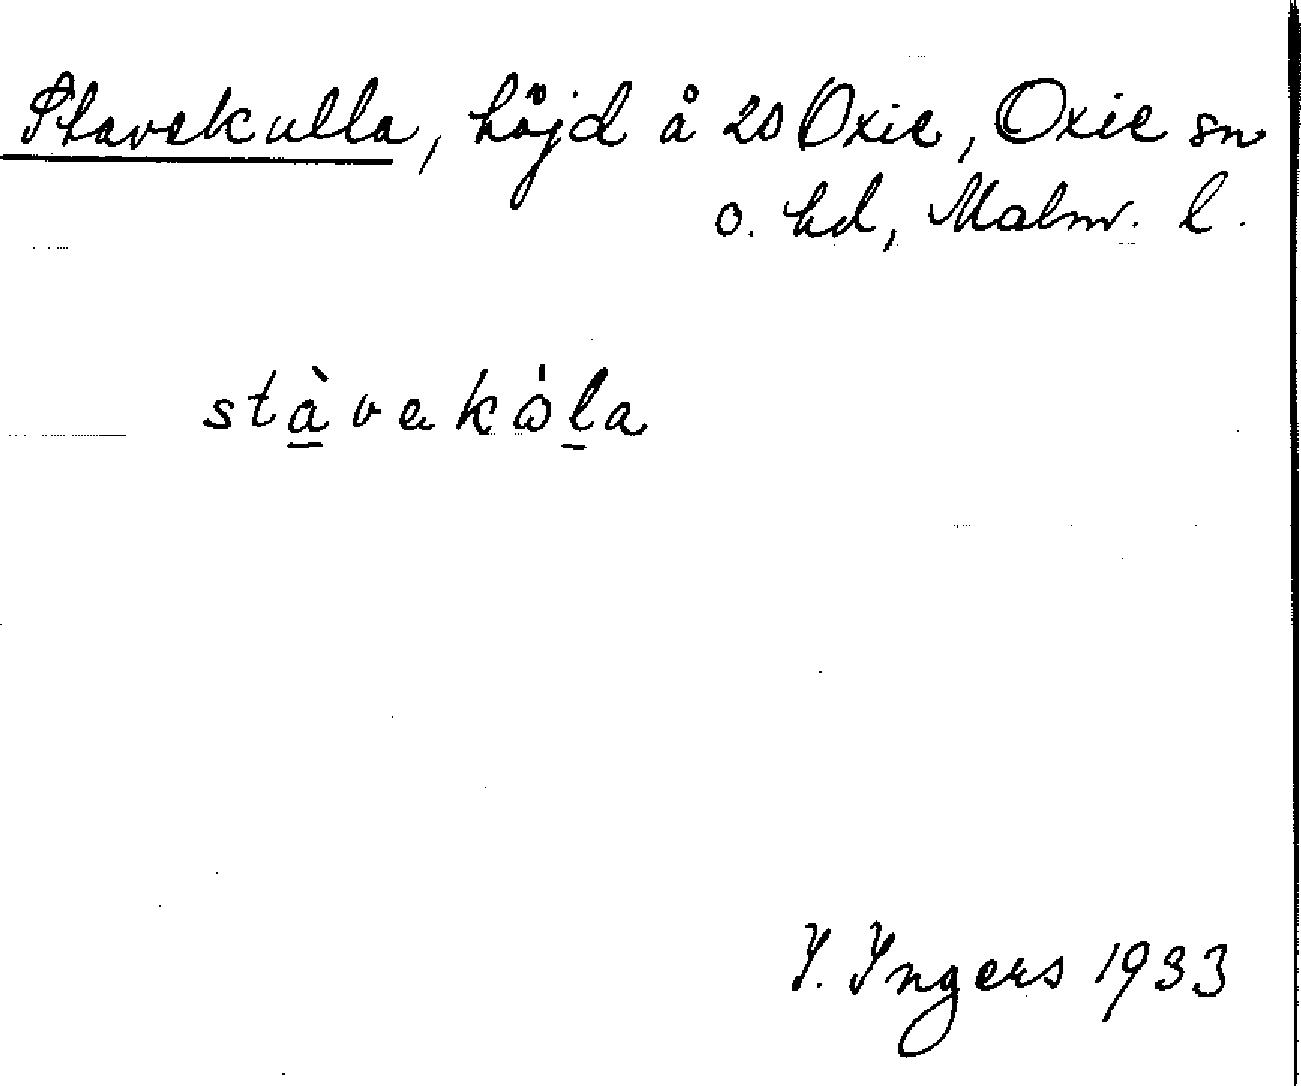 Stavekulla, höjd å 20 Oxie, Oxie sn
o. hd, Malm. l.
stàvakòla
I. Ingers 1933